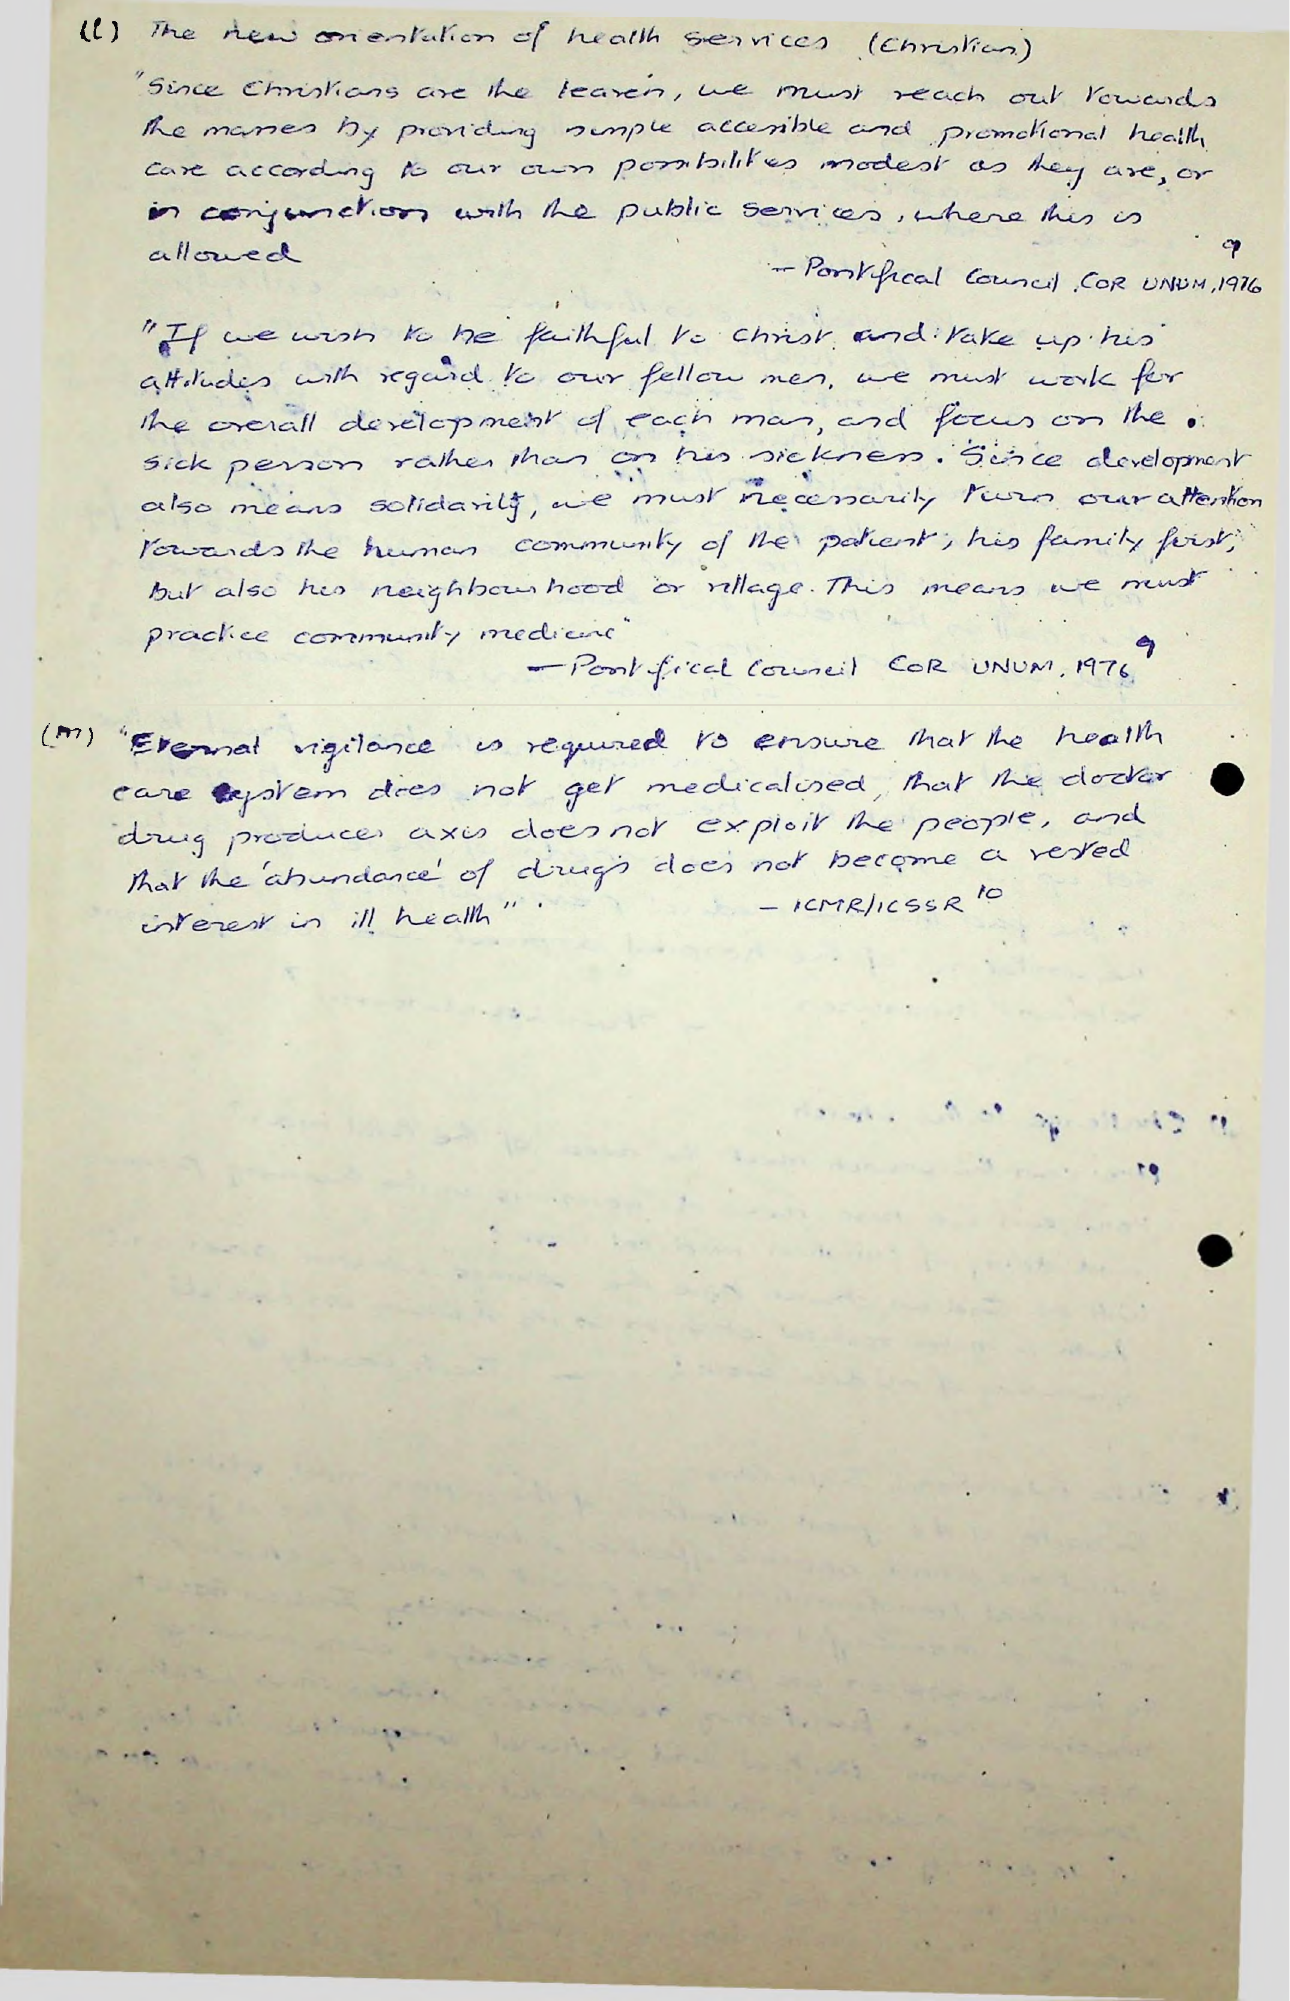 (l) The new orientation of health services (Christian)
"Since Christians are the leaven, we must reach out towards
the masses by providing simple accessible and promotional health
care according to our own possibilities modest as they are, or
in conjunction with the public services, where this is
allowed
— Pontifical Council COR UNUM, 1976 9
"If we wish to be faithful to Christ and take up his
attitudes with regard to our fellow men, we must work for
the overall development of each man, and focus on the
sick person rather than on his sickness. Since development
also means solidarity, we must necessarily turn our attention
towards the human community of the patient; his family first,
but also his neighbourhood or village. This means we must
practice community medicine"
— Pontifical Council COR UNUM, 1976 9
(m) "Eternal vigilance is required to ensure that the health
care system does not get medicalised, that the doctor
drug producer axis does not exploit the people, and
that the 'abundance' of drugs does not become a vested
interest in ill health"
— ICMR/ICSSR 10